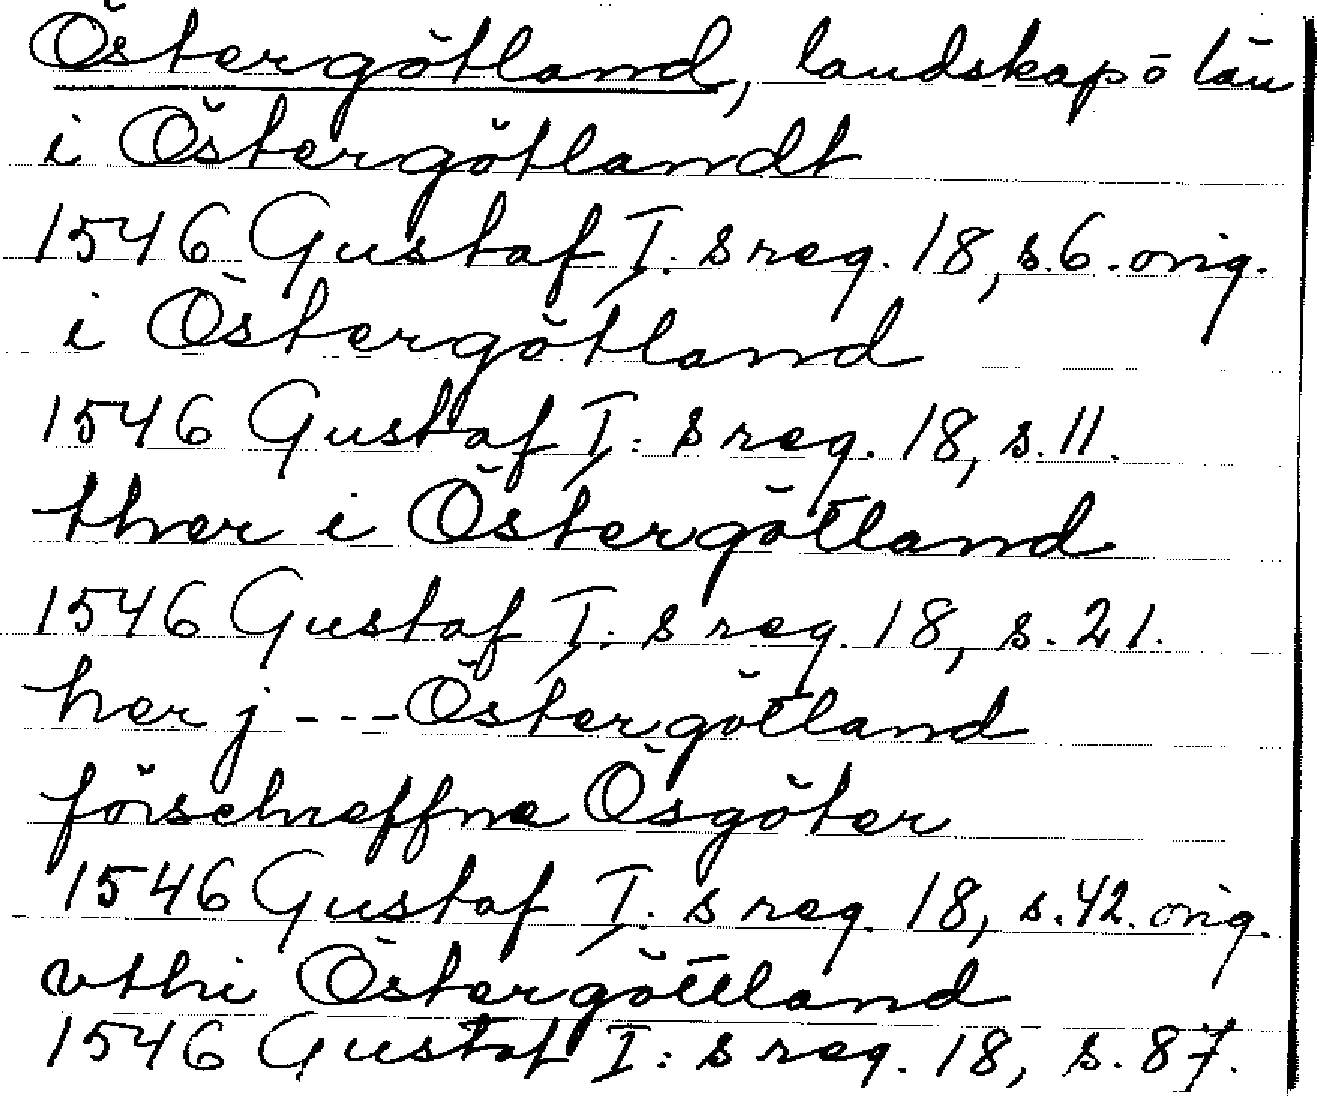 Östergötland, landskap o län
i Östergötlandt
1546 Gustaf I:s reg. 18, s. 6. orig.
i Östergötland
1546 Gustaf I:s reg. 18, s. 11.
ther i Östergötland
1546 Gustaf I:s reg. 18, s. 21.
her j --- Östergötland
förschreffne Ösgöter
1546 Gustaf I:s reg. 18, s. 42. orig.
vthi Östergöttland
1546 Gustaf I:s reg. 18, s. 87.